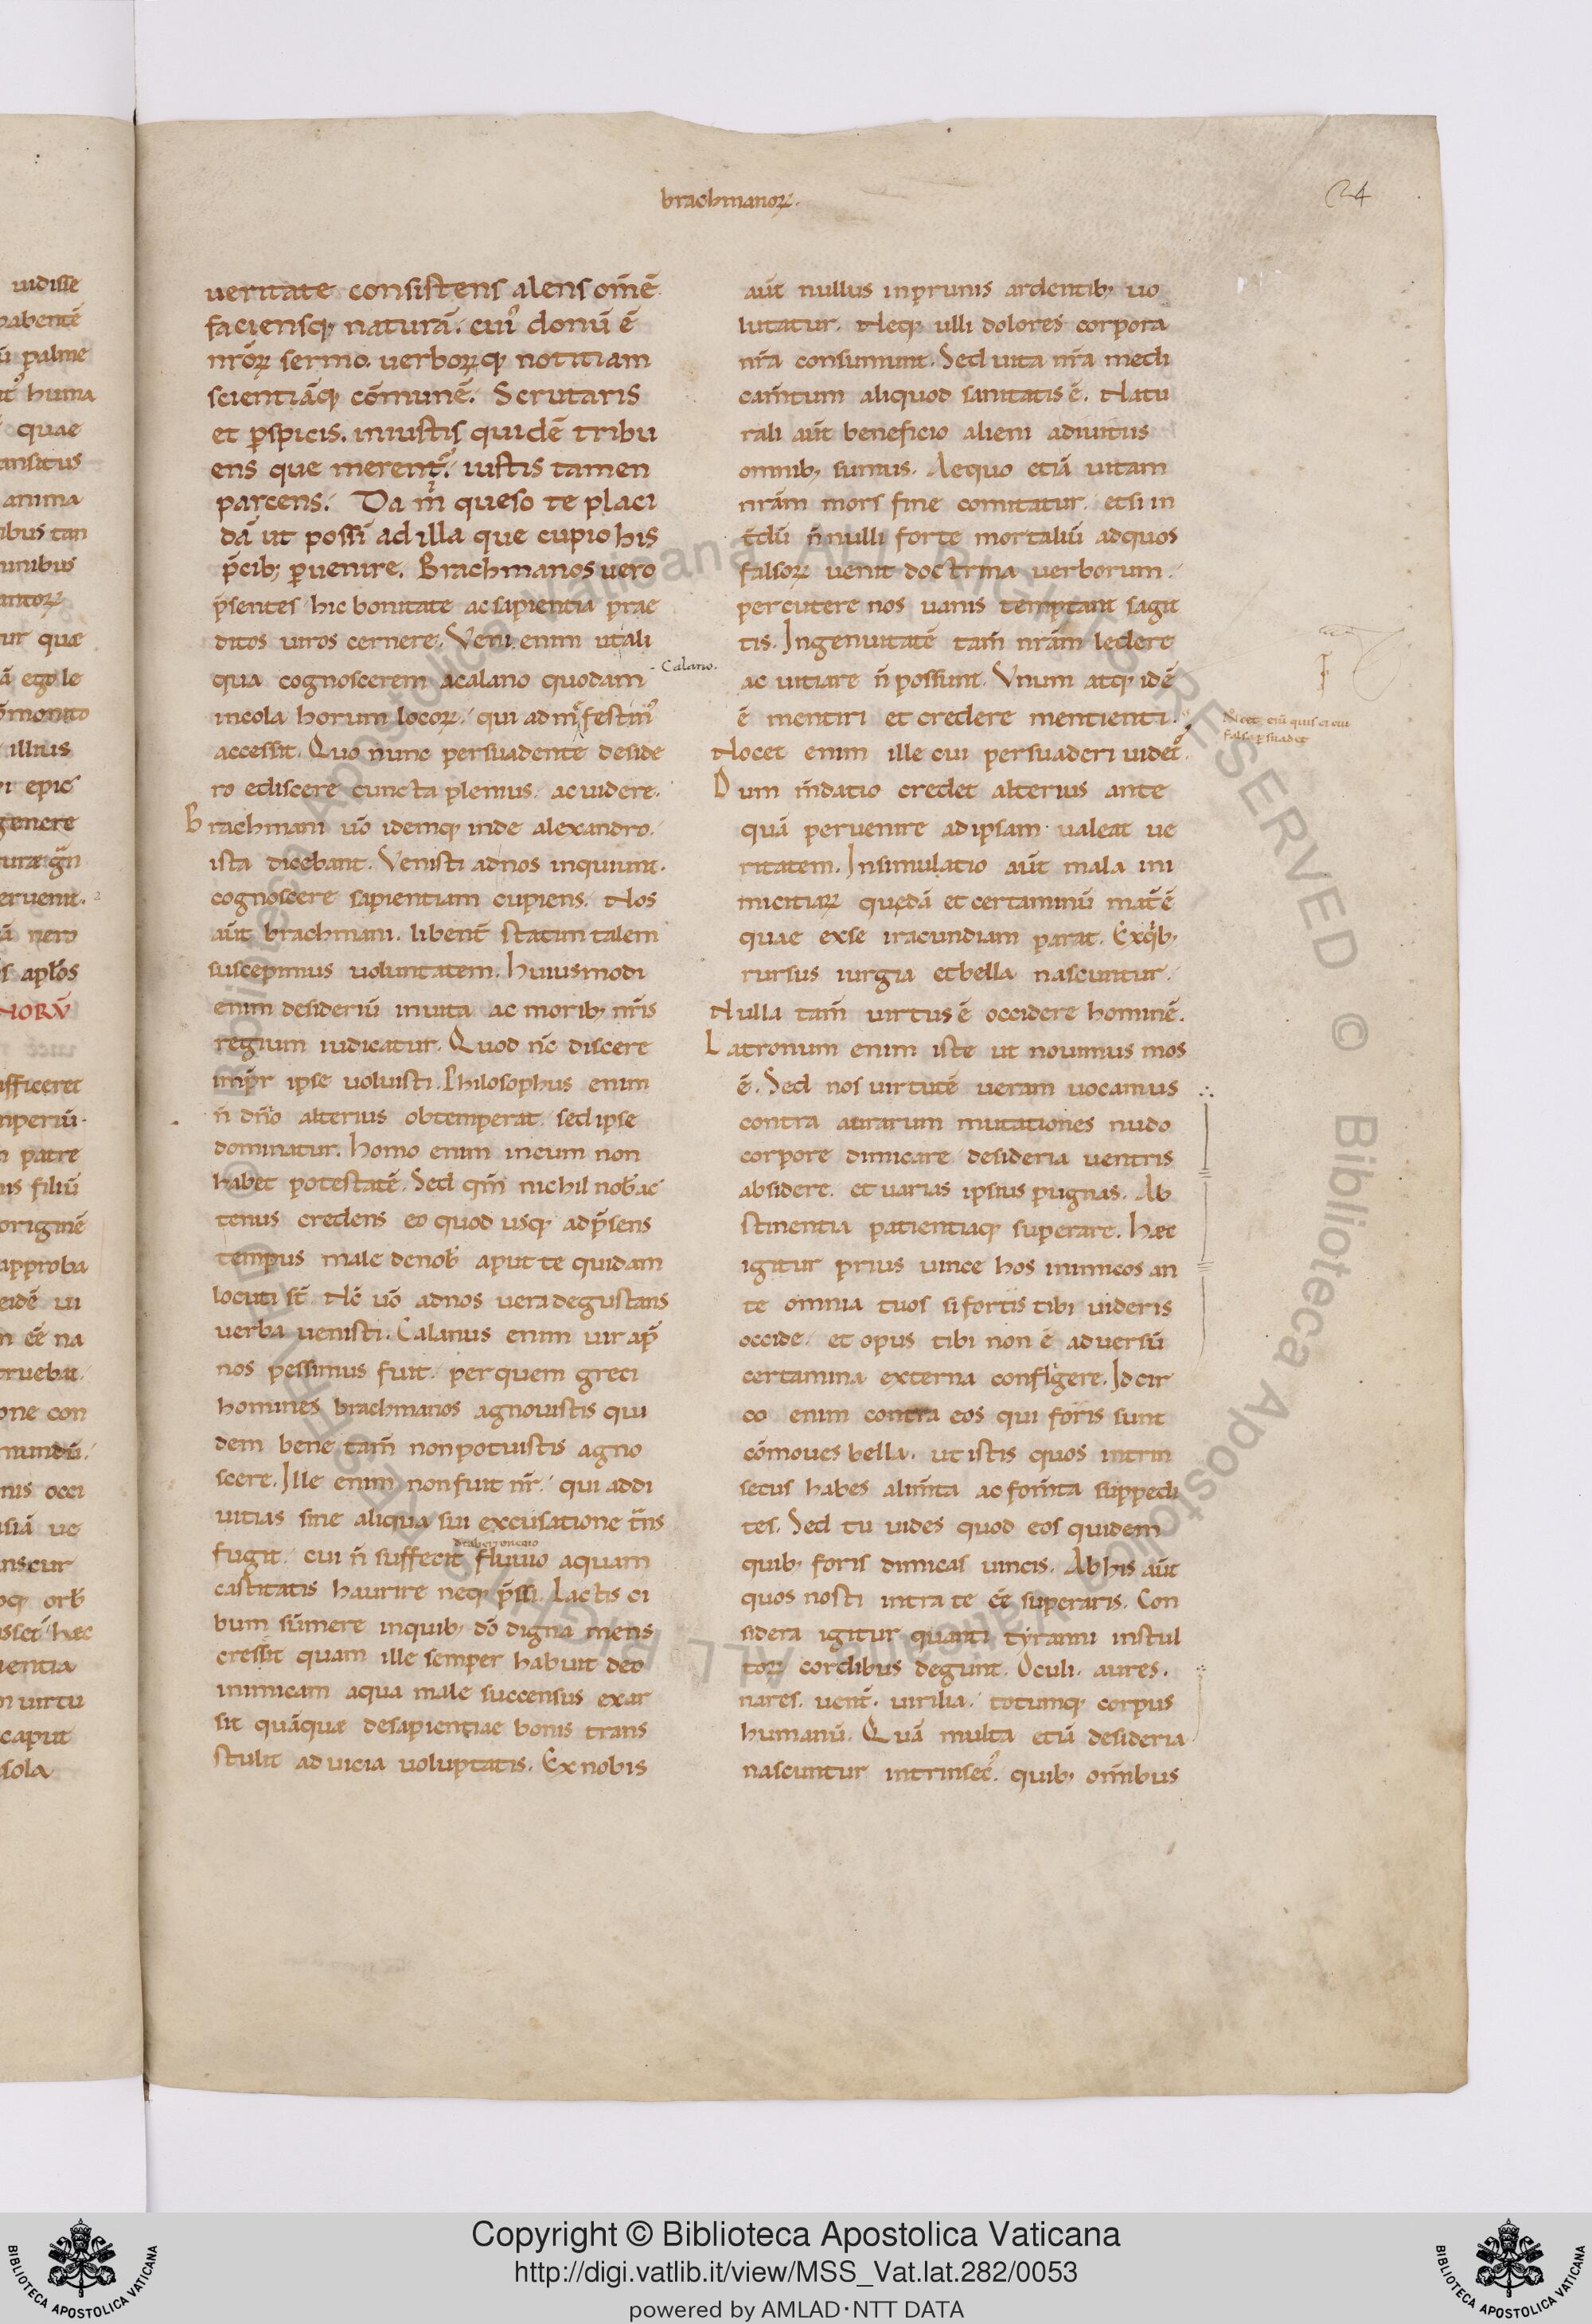 brachmanoꝝ.
24
uidisse
habentē
ū palme
huma
quae
ansitus
anima
ibus tan
unibus
antoꝝ
ur quæ
ā ego le
illius
ı epic
genere
eruenit.
ā nero
s aplos
NORV̄
ifficeret
nperiū.
n patre
is filiū
originē
approba
eidē ui
n eē na
truebat.
one con
mundū.
nis occi
siā ue
orb
sset hæc
ientia
n uirtu
caput
sola
ueritate consistens alens om̄ē
faciensq; naturā. cui' donū ē
nr̄oꝝ sermo. uerborꝝq; notitiam
scientiāq; cōmunē. Scrutaris
et ꝑspicis. iniustis quidē tribu
ens que merent᷑. iustis tamen
parcens. Da m̄ queso te placi
dā ut possī ad illa que cupio his
p̄cib; ꝑuenire. Brachmanos uero
p̄sentes hic bonitate ac sapientia prae
ditos uiros cernere. Veni enim ut ali
qua cognoscerem a calano quodam
- Calano.
incola horum locoꝝ. qui ad m̄ festin'
accessit. Quo nunc persuadente deside
ro ediscere cuncta plenius. ac uidere.
Brachmani uō idemq; inde alexandro.
ista dicebant. Venisti ad nos inquiunt.
cognoscere sapientiam cupiens. Nos
aūt brachmani. libent̄ statim talem
suscepimus uoluntatem. Huiusmodi
enim desideriū in uita ac morib; nr̄is
regium iudicatur. Quod nc̄ discere
imp̄r ipse uoluisti. Philosophus enim
n̄ dn̄o alterius obtemperat. sed ipse
dominatur. Homo enim in eum non
habet potestatē. Sed qm̄ nichil nob̄ ac
tenus credens eo quod usq; ad p̄sens
tempus male de nob̄ aput te quidam
locuti st̄. Nc̄ uō ad nos uera degustans
uerba uenisti. Calanus enim uir ap̄
nos pessimus fuit. per quem greci
homines brachmanos agnouistis qui
dem bene tam̄ non potuistis agno
scere. Ille enim non fuit nr̄. qui ad di
uitias sine aliqua sui excusatione t̄ns
fugit. cui n̄ suffecit fluuio aquam
castitatis haurire neq; p̄ssi. Lactis ci
bum sūmere in quib; dō digna mens
cressit quam ille semper habuit deo
inimicam aqua male succensus exar
sit quāquæ de sapientiae bonis trans
stulit ad uicia uoluptatis. Ex nobis
aūt nullus in prunis ardentib; uo
lutatur. Neq; ulli dolores corpora
nr̄a consumunt. Sed uita nr̄a medi
cam̄tum aliquod sanitatis ē. Natu
rali aūt beneficio alieni a diuitiis
omnib; sumus. Aequo etiā uitam
nr̄am mors fine comitatur. etsi in
t̄dū n̄ nulli forte mortaliū ad quos
falsoꝝ uenit doctrina uerborum.
percutere nos uanis temptant sagit
tis. Ingenuitatē tam̄ nr̄am ledere
ac uitiare n̄ possunt. Vnum atq; idē
ē mentiri et credere mentienti.
Nocet enim quis ei cui
falsa ꝑsuadet
Nocet enim ille cui persuaderi uidet᷑.
Dum m̄datio credet alterius ante
quā peruenire ad ipsam ualeat ue
ritatem. Insimulatio aūt mala ini
micitiaꝝ quędā et certaminū mat̄ ē
quae ex se iracundiam parat. Ex q'b;
rursus iurgia et bella nascuntur.
Nulla tam̄ uirtus ē occidere hominē.
Latronum enim iste ut nouimus mos
ē. Sed nos uirtutē ueram uocamus
contra aurarum mutationes nudo
corpore dimicare desideria uentris
absidere. et uarias ipsius pugnas. Ab
stinentia patientiaq; superare. Hæc
igitur prius uince hos inimicos an
te omnia tuos si fortis tibi uideris
occide. et opus tibi non ē aduersū
certamina externa confligere. Idcir
co enim contra eos qui foris sunt
cōmoues bella. ut istis quos intrin
secus habes alim̄ta ac fom̄ta suppedi
tes. Sed tu uides quod eos quidem
quib; foris dimicas uincis. Ab his aūt
quos nosti intra te eē superaris. Con
sidera igitur quanti tyranni instul
toꝝ cordibus degunt. Oculi. aures.
nares. uent̄. uirilia. totumq; corpus
humanū. Quā multa etiā desideria
nascuntur intrinsec'. quib; om̄ibus
Copyright © Biblioteca Apostolica Vaticana
http://digi.vatlib.it/view/MSS_Vat.lat.282/0053
powered by AMLAD·NTT DATA
BIBLIOTECA APOSTOLICA VATICANA
BIBLIOTECA APOSTOLICA VATICANA